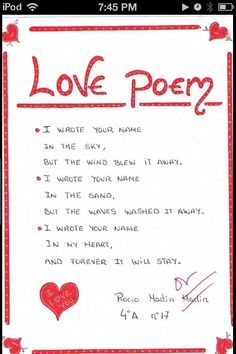 iPod 7:45 PM
LOVE POEM
I WROTE YOUR NAME
IN THE SKY,
BUT THE WIND BLEW IT AWAY.
I WROTE YOUR NAME
IN THE SAND,
BUT THE WAVES WASHED IT AWAY.
I WROTE YOUR NAME
IN MY HEART,
AND FOREVER IT WILL STAY.
I LOVE YOU
Rocio Martin Martin
4°A nº17